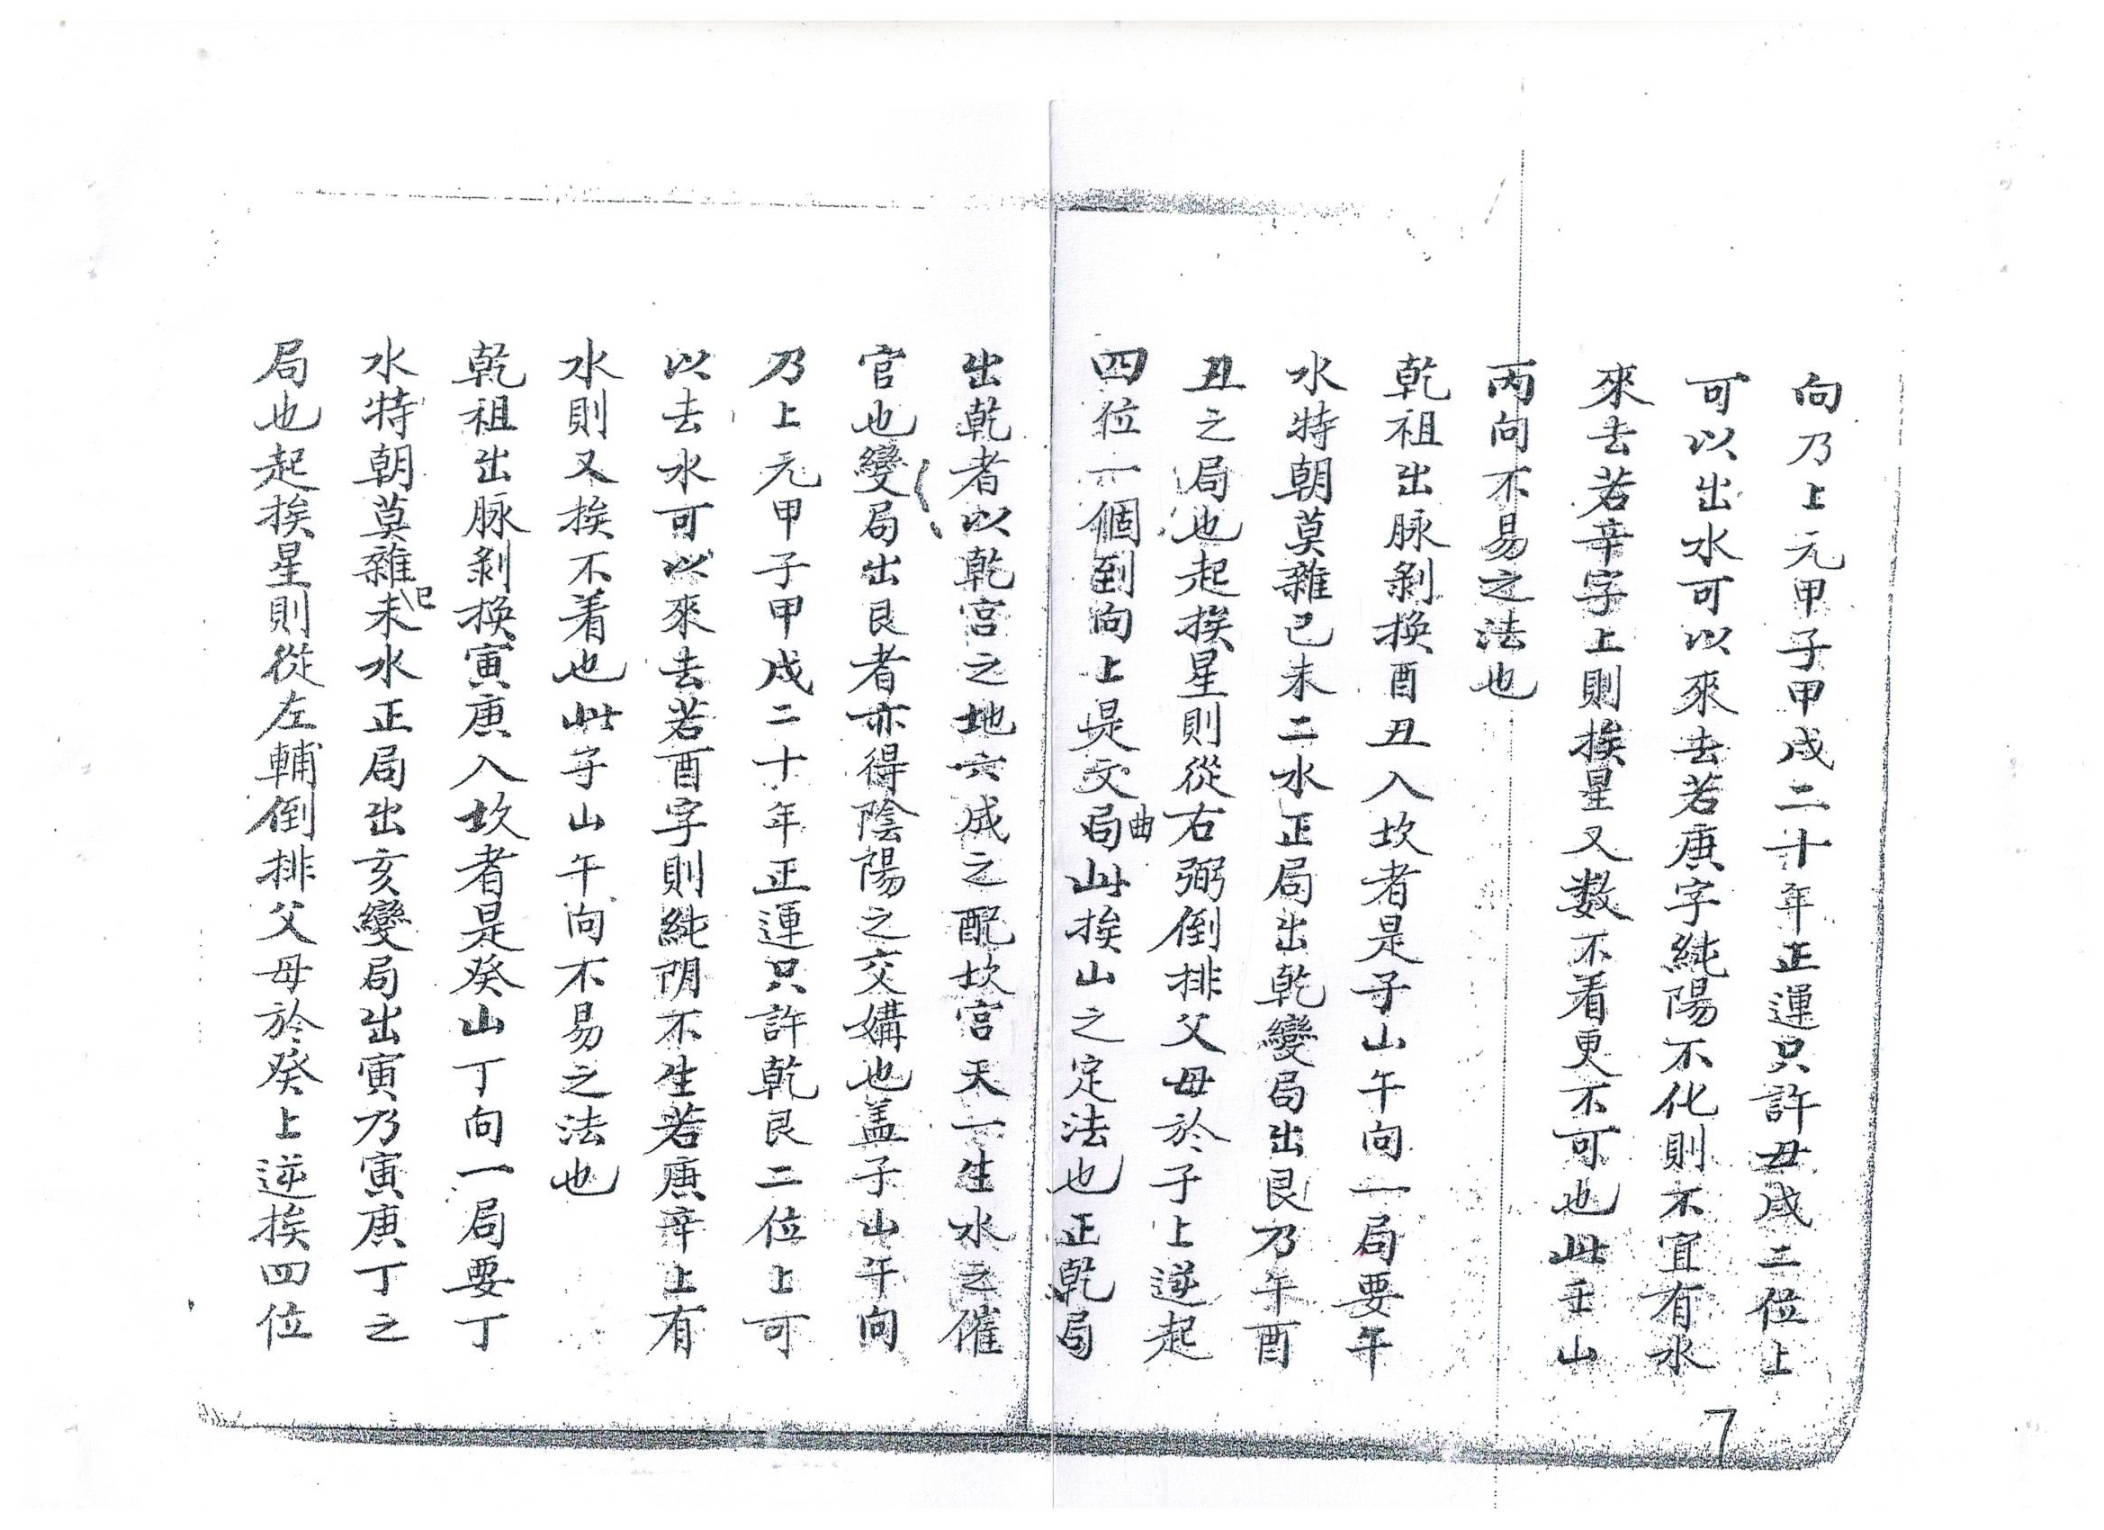 向乃上元甲子甲戌二十年正運只許丑戌二位上
可以出水可以來去若庚字純陽不化則不宜有水
來去若辛字上則挨星又数不着更不可也此壬山
丙向不易之法也
乾祖出脉剝換酉丑入坎者是子山午向一局要午
水特朝莫雜己未二水正局出乾變局出艮乃午酉
丑之局也起挨星則從右弼倒排父母於子上逆起
四位一個到向上是文曲局此挨山之定法也正乾局
出乾者以乾宮之地六成之配坎宮天一生水之催
官也變局出艮者亦得陰陽之交媾也盖子山午向
乃上元甲子甲戌二十年正運只許乾艮二位上可
以去水可以來去若酉字則純阴不生若庚辛上有
水則又挨不着也此子山午向不易之法也
乾祖出脉剝換寅庚入坎者是癸山丁向一局要丁
水特朝莫雜巳未水正局出亥變局出寅乃寅庚丁之
局也起挨星則從左輔倒排父母於癸上逆挨四位
7